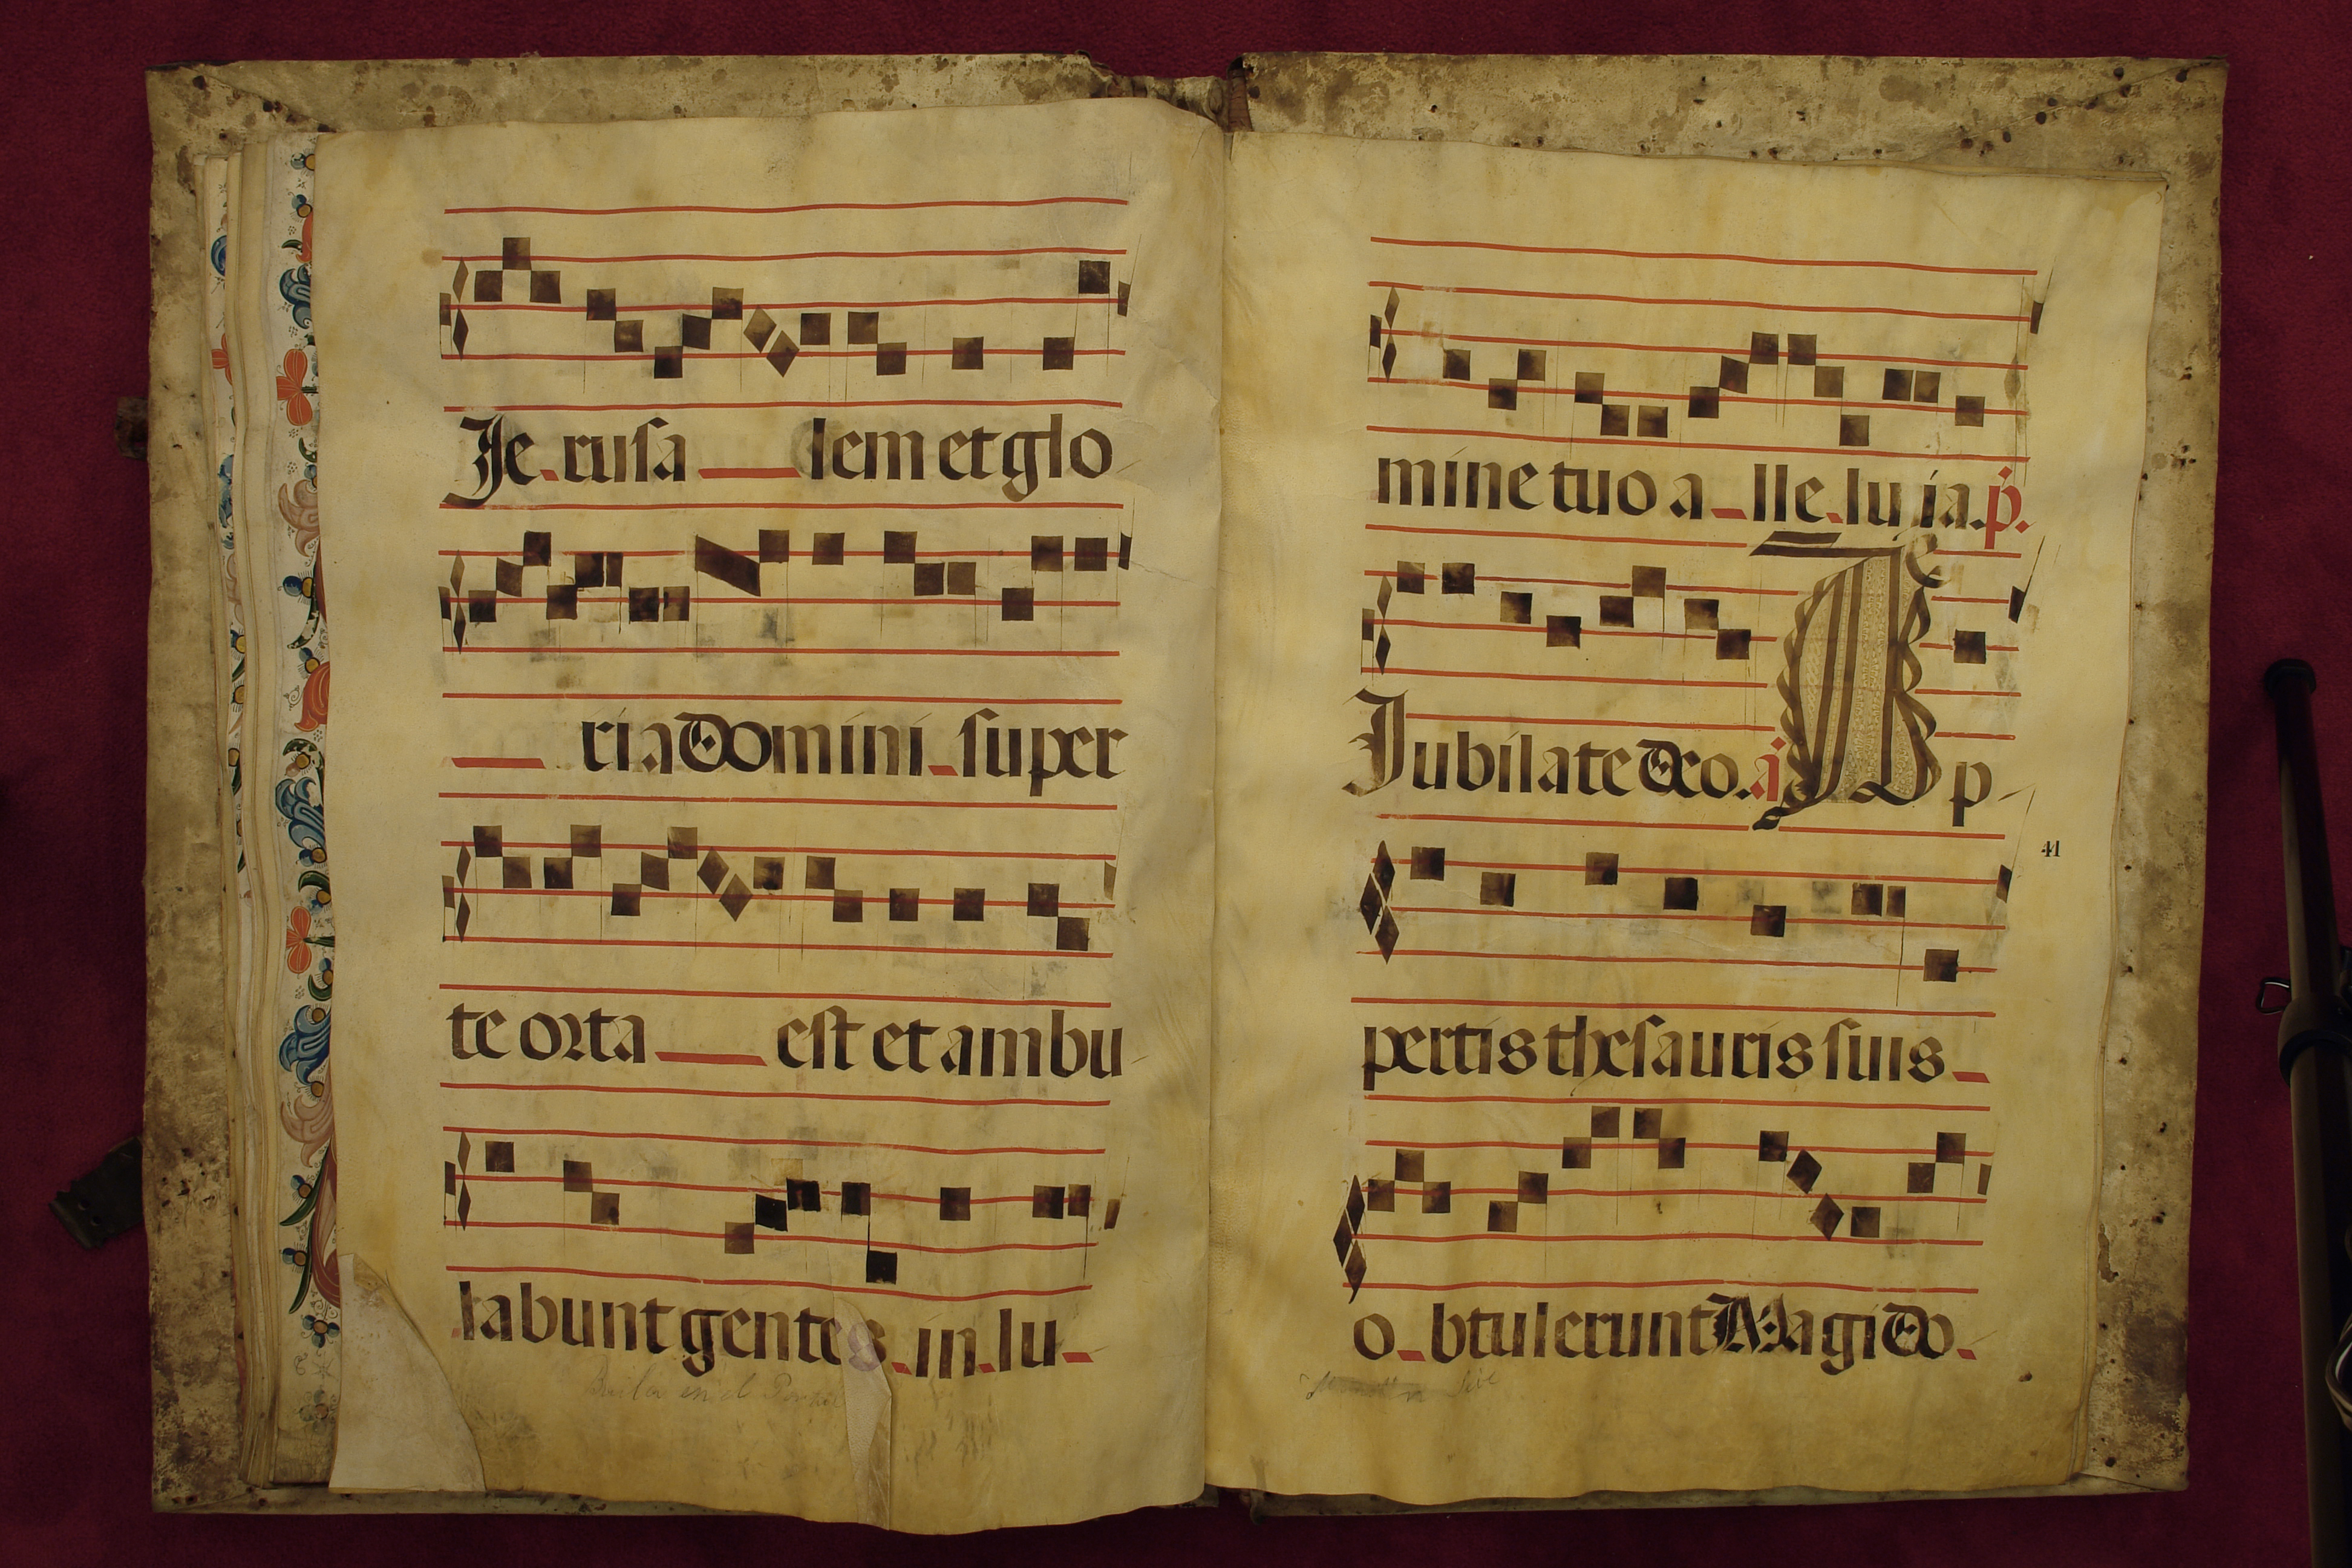 Je rusa lem et glo
ria Domini super
te orta est et ambu
labunt gentes in lu
mine tuo a lle lu ia. p.
Jubilate Deo. a A p
41
pertis thesauris suis
o btulerunt Magi Do